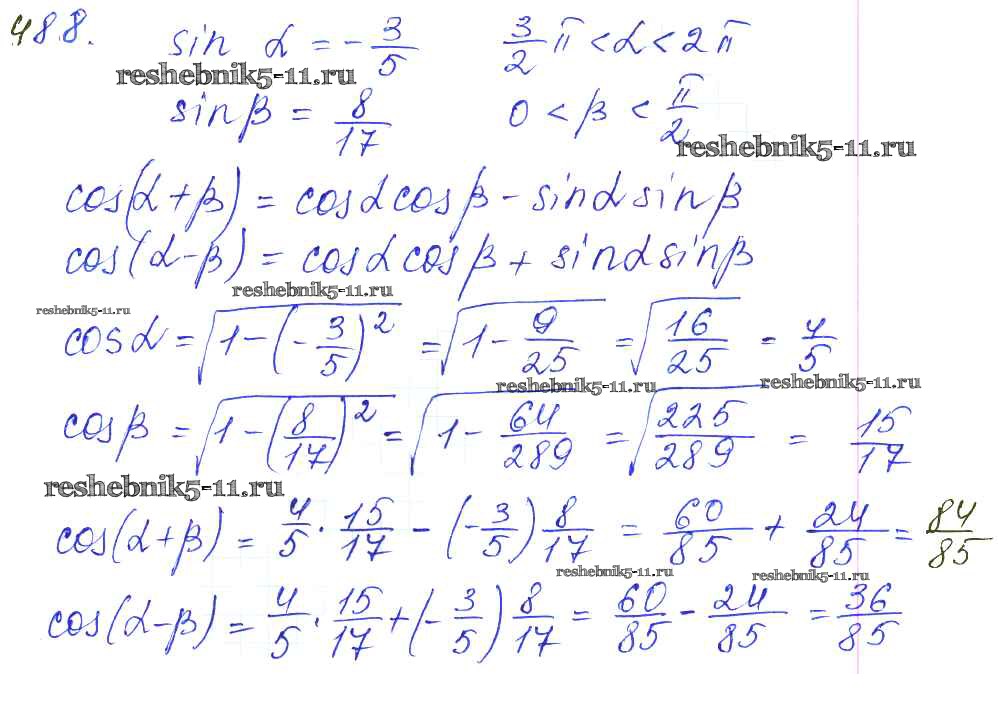 488. sin α = -3/5 3/2 π < α < 2π
reshebnik5-11.ru
sin β = 8/17 0 < β < π/2
reshebnik5-11.ru
cos(α + β) = cos α cos β - sin α sin β
cos(α - β) = cos α cos β + sin α sin β
reshebnik5-11.ru
reshebnik5-11.ru
cos α = √(1 - (-3/5)²) = √(1 - 9/25) = √(16/25) = 4/5
reshebnik5-11.ru reshebnik5-11.ru
cos β = √(1 - (8/17)²) = √(1 - 64/289) = √(225/289) = 15/17
reshebnik5-11.ru
cos(α + β) = 4/5 · 15/17 - (-3/5) 8/17 = 60/85 + 24/85 = 84/85
reshebnik5-11.ru reshebnik5-11.ru
cos(α - β) = 4/5 · 15/17 + (-3/5) 8/17 = 60/85 - 24/85 = 36/85